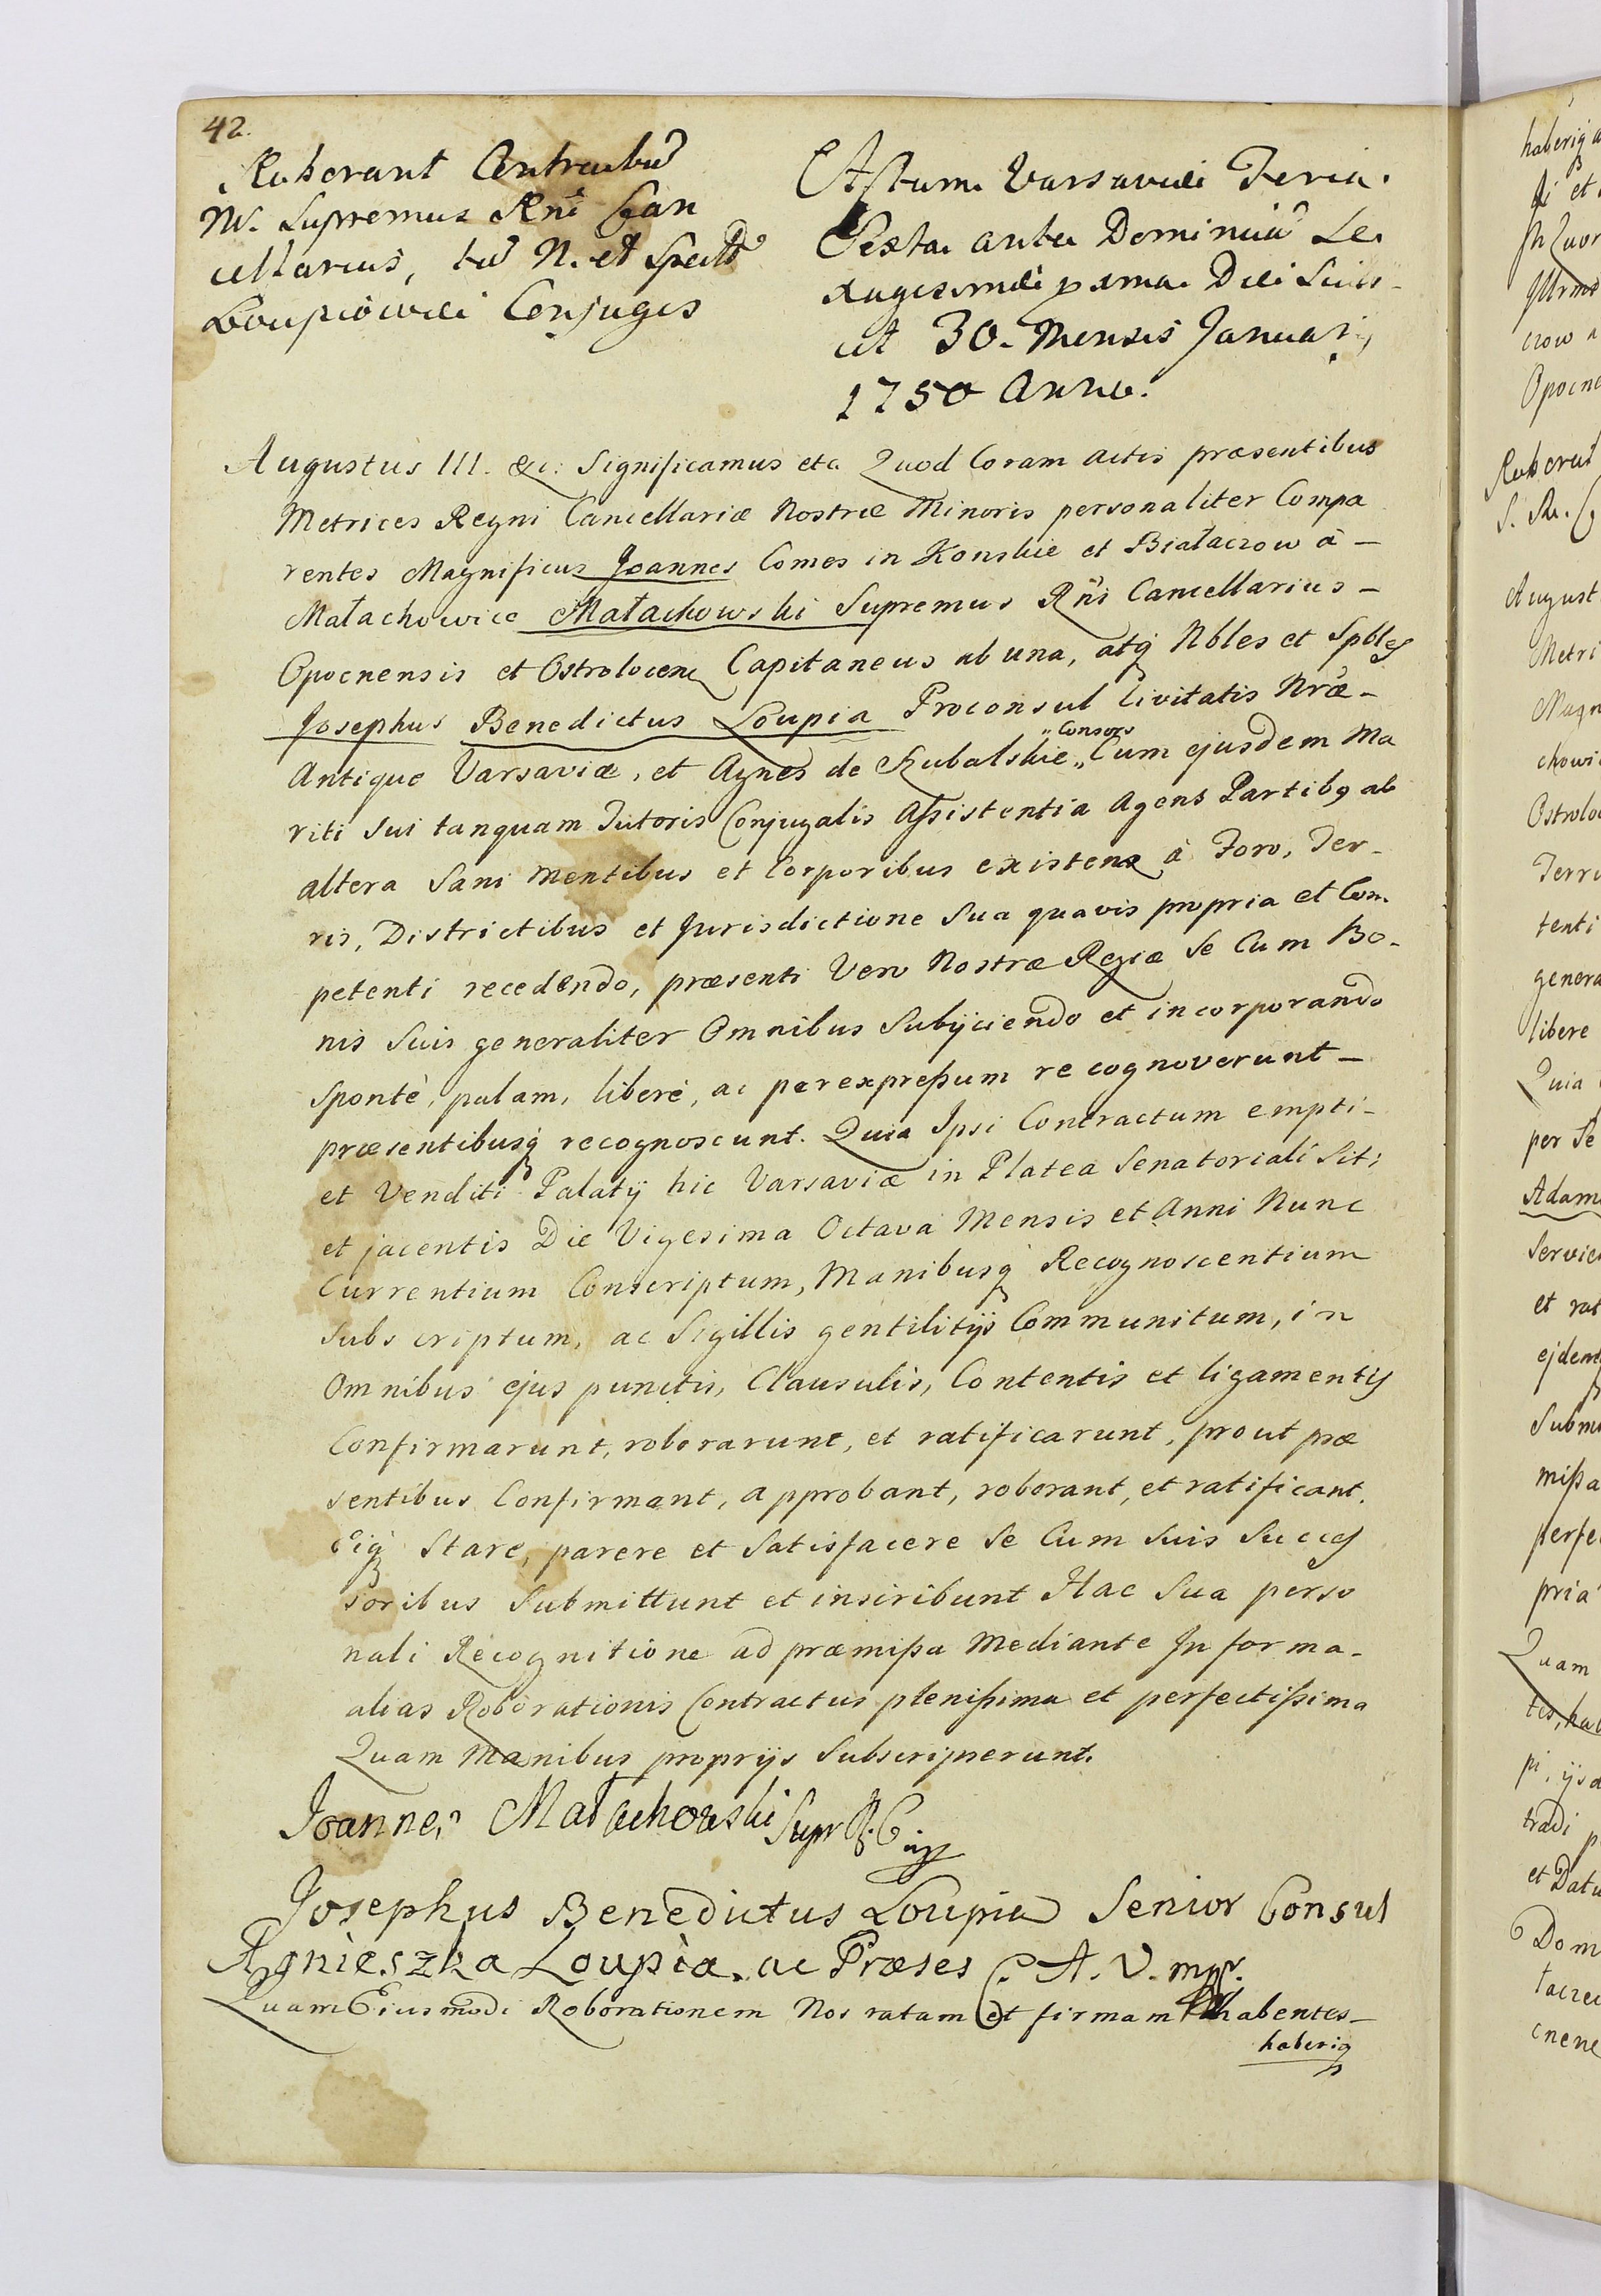 42.
Roborant Contractū
M. Supremus Rńi Can
cellarius, tū N. et Spectt
Loupiowie Conjuges
Actum Varsaviæ Feria
Sexta ante Dominicā Se
xagesimæ pxma Die Scili-
cet 30. Mensis Januarij
1750 Anno.
Augustus III. &c: Significamus etc. Quod Coram actis præsentibus
Metrices Regni Cancellariæ Nostræ Minoris personaliter Compa
rentes Magnificus Joannes Comes in Konskie et Białaczow à -
Małachowice Małachowski Supremus Rńi Cancellarius -
Opocnensis et Ostrolocen Capitaneus ab una, atq Nbles et Spbles
Josephus Benedictus Loupia Proconsul Civitatis Nræ -
Antiquæ Varsaviæ, et Agnes de Rubalskie „Consors„ Cum ejusdem Ma
riti sui tanquam Tutoris Conjugalis Assistentia Agens Partibq ab
altera Sani Mentibus et Corporibus existen à Foro, Ter-
ris, Districtibus et Jurisdictione Sua quavis propria et Com
petenti recedendo, præsenti Vero Nostræ Regiæ Se Cum Bo-
nis Suis generaliter Omnibus Subijciendo et incorporando
Spontè, palam, liberè, ac per expressum recognoverunt -
præsentibusq recognoscunt. Quia Ipsi Contractum empti -
et Venditi Palatij hic Varsaviæ in Platea Senatoriali Siti
et jacentis Die Vigesima Octava Mensis et Anni Nunc
Currentium Conscriptum, Manibusq Recognoscentium
Subscriptum, ac Sigillis gentilitijs Communitum, in
Omnibus ejus punctis, Clausulis, Contentis et ligamentis
Confirmarunt, roborarunt, et ratificarunt, prout præ
sentibus Confirmant, approbant, roborant, et ratificant.
Eiq Stare, parere et Satisfacere Se Cum Suis Succes
soribus Submittunt et inscribunt Hac Sua perso
nali Recognitione ad præmissa Mediante In forma -
alias Roborationis Contractus plenissima et perfectissima
Quam Manibus proprijs Subscripserunt.
Joannes Małachowski Supr R. C
Josephus Benedictus Loupia Senior Consul
Agnieszka Loupia. ac Præses C. A. V. mpr.
Quam Eiusmodi Roborationem Nos ratam et firmam habentes -
haberiq
haberiq
crow
Opocne
S. R.
August
Metri
Magn
chowi
Ostrolo
Terri
tenti
genera
libere
Quia
per Se
Adam
Servic
et rat
ejdem
Subm
missa
perfe
pria
Quam
tradi
et Datu
Dom